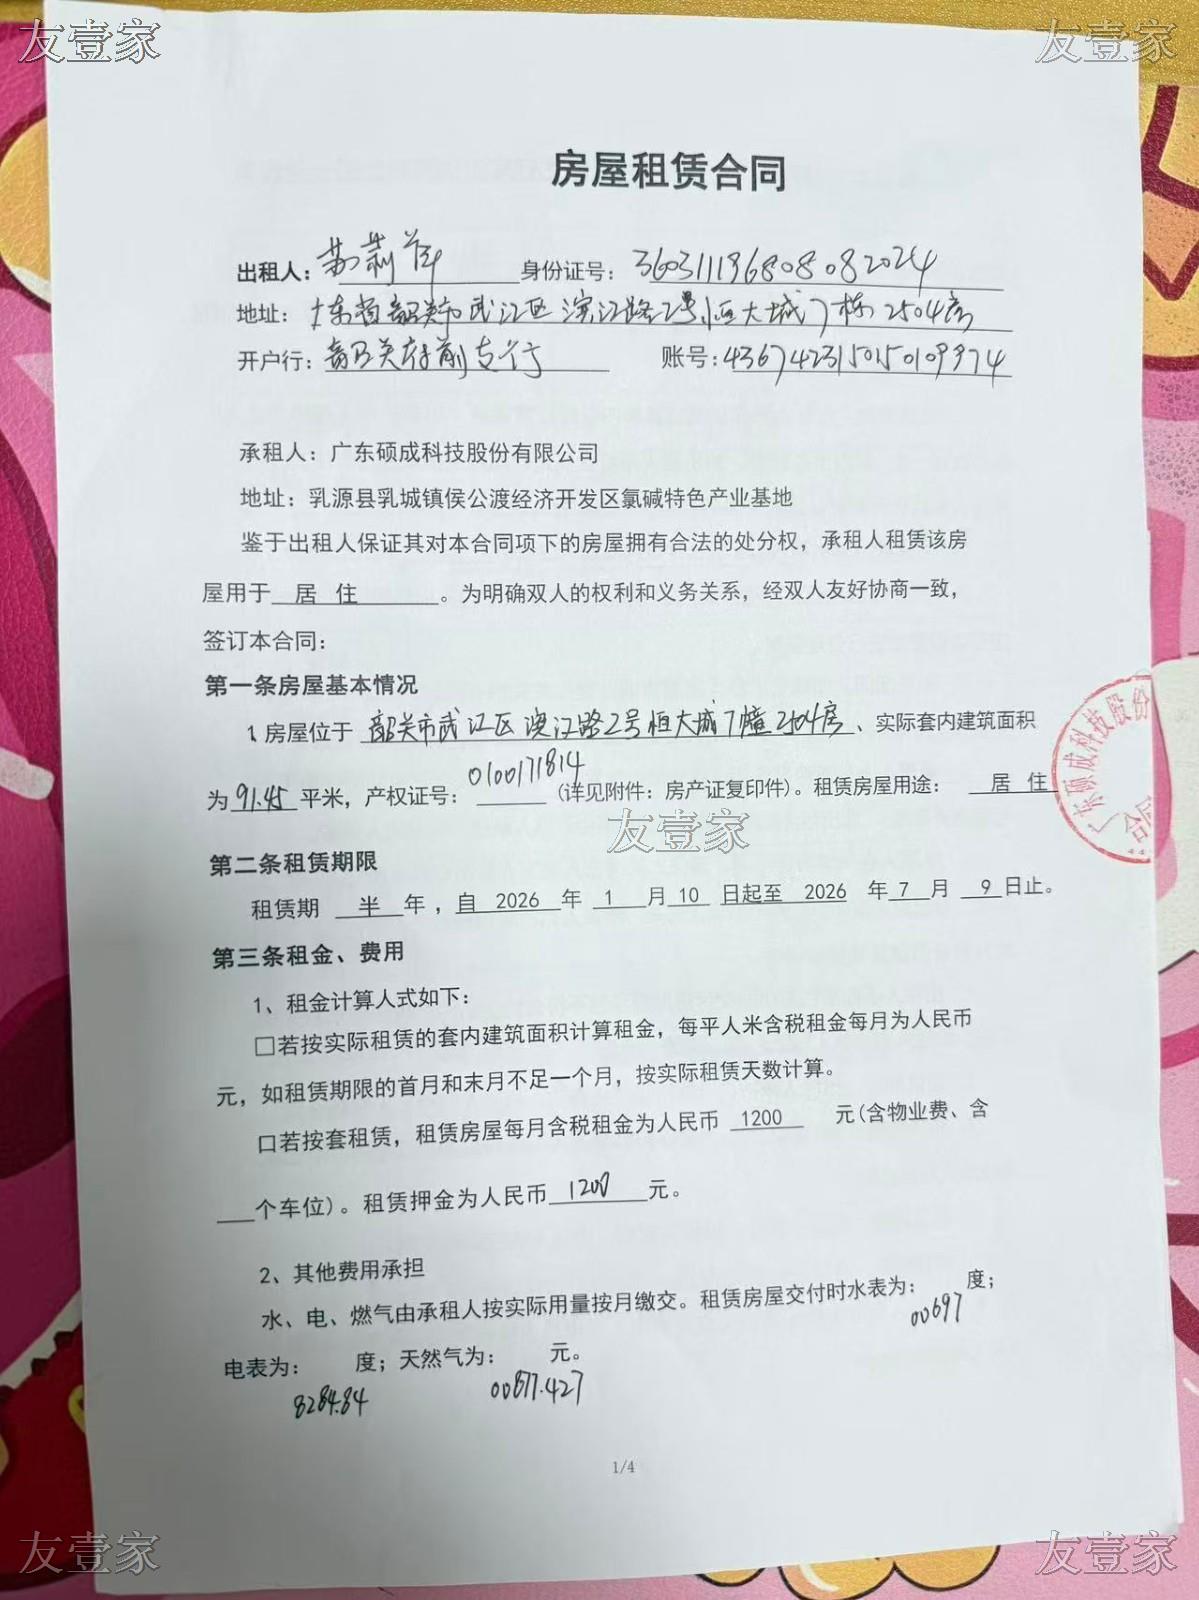 友壹家
友壹家
房屋租赁合同
出租人: 身份证号: 360311196808082024
地址: 广东省韶关市武江区滨江路2号恒大城7栋2504房
开户行: 韶关府前支行 账号: 4367423150150109974
承租人: 广东硕成科技股份有限公司
地址: 乳源县乳城镇侯公渡经济开发区氯碱特色产业基地
鉴于出租人保证其对本合同项下的房屋拥有合法的处分权，承租人租赁该房
屋用于 居 住 。为明确双人的权利和义务关系，经双人友好协商一致，
签订本合同:
第一条房屋基本情况
1. 房屋位于 韶关市武江区滨江路2号恒大城7幢2504房 、实际套内建筑面积
为 91.45 平米，产权证号: 0100171814 (详见附件: 房产证复印件)。租赁房屋用途: 居 住
广东硕成科技股份
合同
友壹家
第二条租赁期限
租赁期 半 年 ，自 2026 年 1 月 10 日起至 2026 年 7 月 9 日止。
第三条租金、费用
1、租金计算人式如下:
□若按实际租赁的套内建筑面积计算租金，每平人米含税租金每月为人民币
元，如租赁期限的首月和末月不足一个月，按实际租赁天数计算。
口若按套租赁，租赁房屋每月含税租金为人民币 1200 元(含物业费、含
个车位)。租赁押金为人民币 1200 元。
2、其他费用承担
水、电、燃气由承租人按实际用量按月缴交。租赁房屋交付时水表为: 00697 度;
电表为: 8284.84 度; 天然气为: 00877.427 元。
1/4
友壹家
友壹家